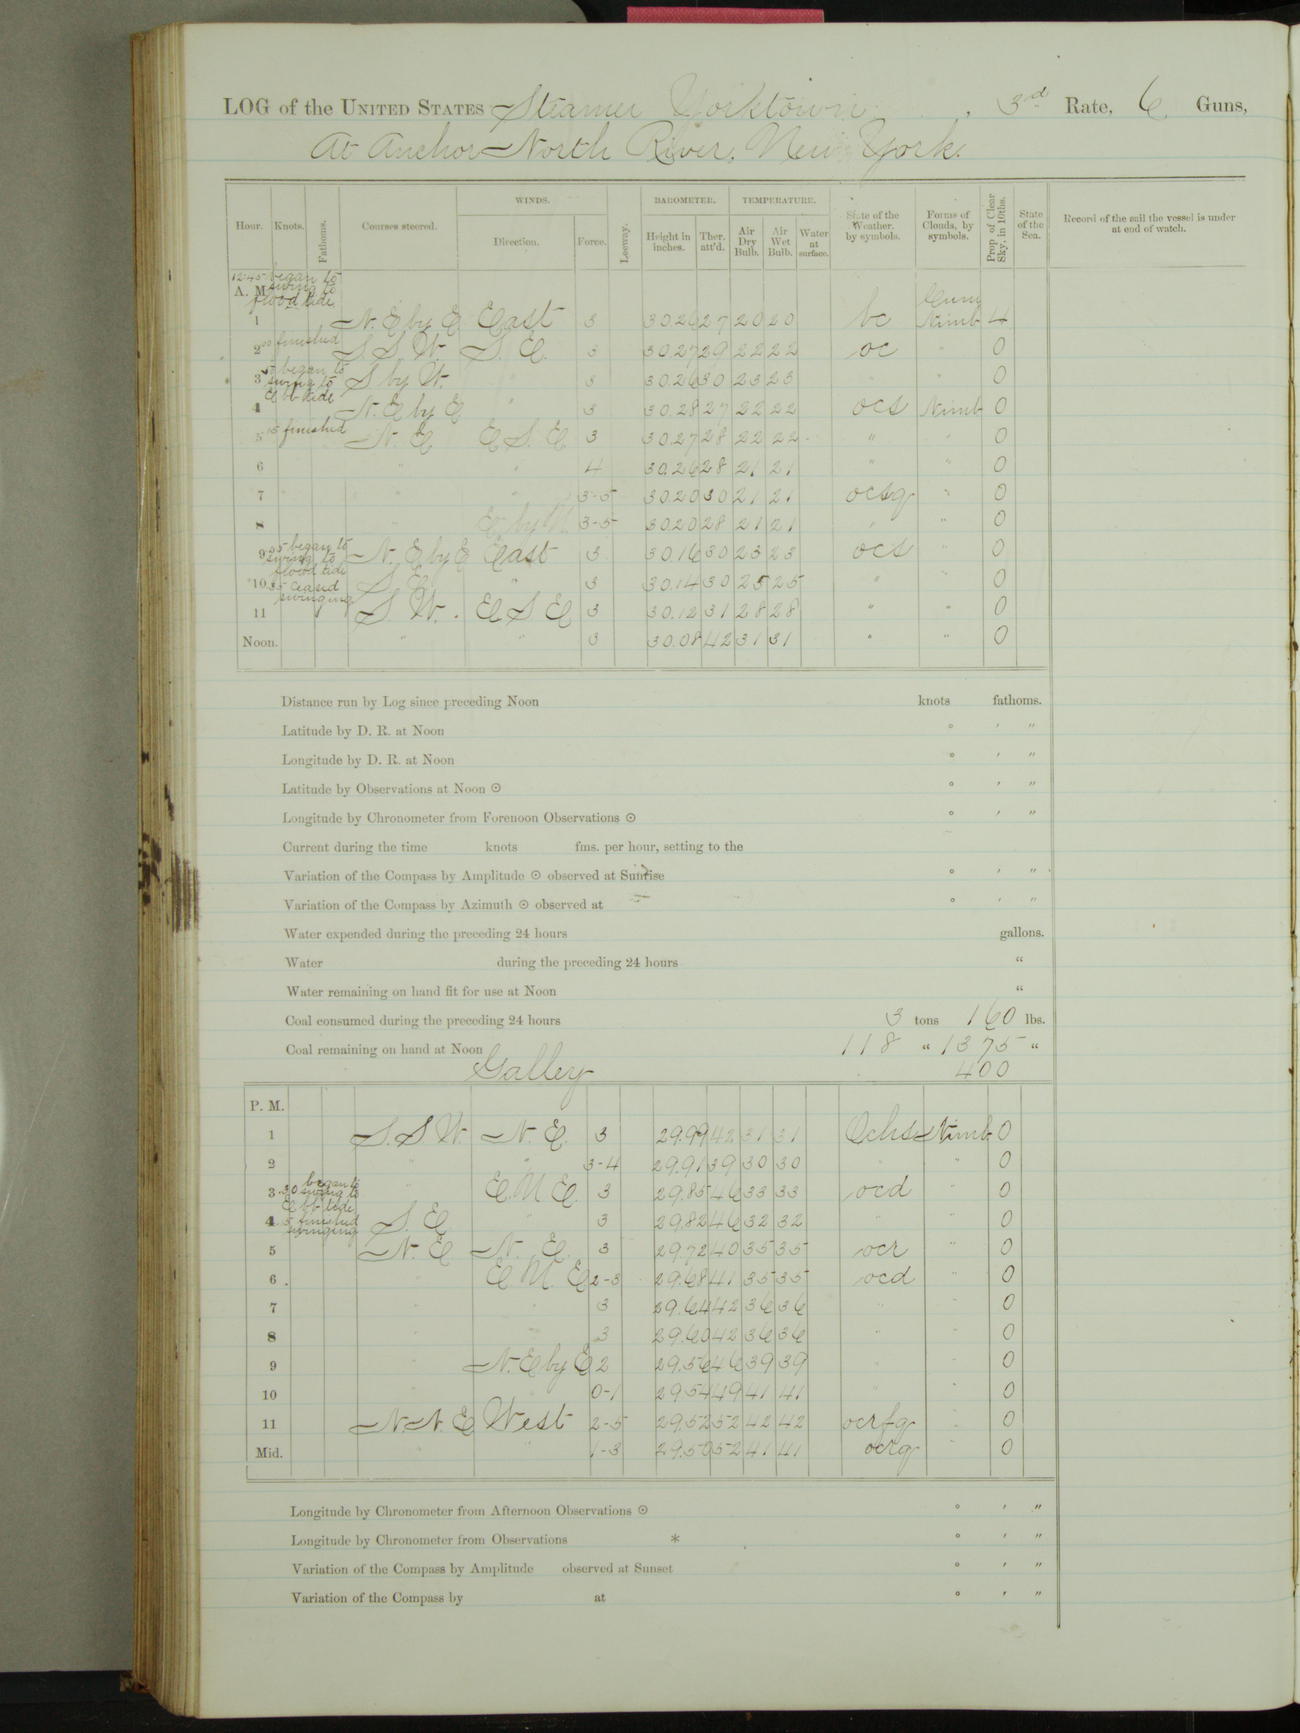 LOG of the UNITED STATES Steamer Yorktown, 3rd Rate, 6 Guns,
At Anchor North River, New York.
WINDS. BAROMETER. TEMPERATURE.
Hour. Knots. Fathoms. Courses steered. Direction. Force. Leeway. Height in inches. Ther. att'd. Air Dry Bulb. Air Wet Bulb. Water at surface. State of the Weather, by symbols. Forms of Clouds, by symbols. Prop. of Clear Sky, in 10ths. State of the Sea. Record of the sail the vessel is under at end of watch.
12.45 began to swing to flood tide
A. M.
1 N. E by E East 3 30.26 27 20 20 bc Cum Nimb 4
2 00 finished S. S. W. S. E. 3 30.27 29 22 22 oc " 0
3 began to swing to Ebb tide S by W. " 3 30.26 30 23 23 " " 0
4 N. E by E " 3 30.28 27 22 22 ocs Nimb 0
5 15 finished N. E E S. E 3 30.27 28 22 22 " " 0
6 " " 4 30.26 28 21 21 " " 0
7 " " 3-5 30.20 30 21 21 ocsq " 0
8 " E by N 3-5 30.20 28 21 21 " " 0
9 began to swing to flood tide N. E by E East 3 30.16 30 23 23 ocs " 0
10 35 ceased swinging S. E. " 3 30.14 30 25 25 " " 0
11 S. W. E S E 3 30.12 31 28 28 " " 0
Noon. " " 3 30.08 42 31 31 " " 0
Distance run by Log since preceding Noon knots fathoms.
Latitude by D. R. at Noon ° ′ ″
Longitude by D. R. at Noon ° ′ ″
Latitude by Observations at Noon ☉ ° ′ ″
Longitude by Chronometer from Forenoon Observations ☉ ° ′ ″
Current during the time knots fms. per hour, setting to the
Variation of the Compass by Amplitude ☉ observed at Sunrise ° ′ ″
Variation of the Compass by Azimuth ☉ observed at ° ′ ″
Water expended during the preceding 24 hours gallons.
Water during the preceding 24 hours "
Water remaining on hand fit for use at Noon "
Coal consumed during the preceding 24 hours 3 tons 160 lbs.
Coal remaining on hand at Noon 118 " 1375 "
Galley 400
P. M.
1 S. S W. N. E. 3 29.99 42 31 31 Ochs Nimb. 0
2 " " 3-4 29.91 39 30 30 " " 0
3 .30 began to swing to Ebb tide " E N E 3 29.85 46 33 33 ocd " 0
4 finished swinging S. E " 3 29.82 46 32 32 " " 0
5 N. E N. E. 3 29.72 40 35 35 ocr " 0
6 " E N. E 2-3 29.68 41 35 35 ocd " 0
7 " " 3 29.64 42 36 36 " " 0
8 " " 3 29.60 42 36 36 " " 0
9 " N. E by E 2 29.56 46 39 39 " " 0
10 " " 0-1 29.54 49 41 41 " " 0
11 N. N. E West 2-5 29.52 52 42 42 ocrfq " 0
Mid. " " 1-3 29.50 52 41 41 ocrq " 0
Longitude by Chronometer from Afternoon Observations ☉ ° ′ ″
Longitude by Chronometer from Observations * ° ′ ″
Variation of the Compass by Amplitude observed at Sunset ° ′ ″
Variation of the Compass by at ° ′ ″